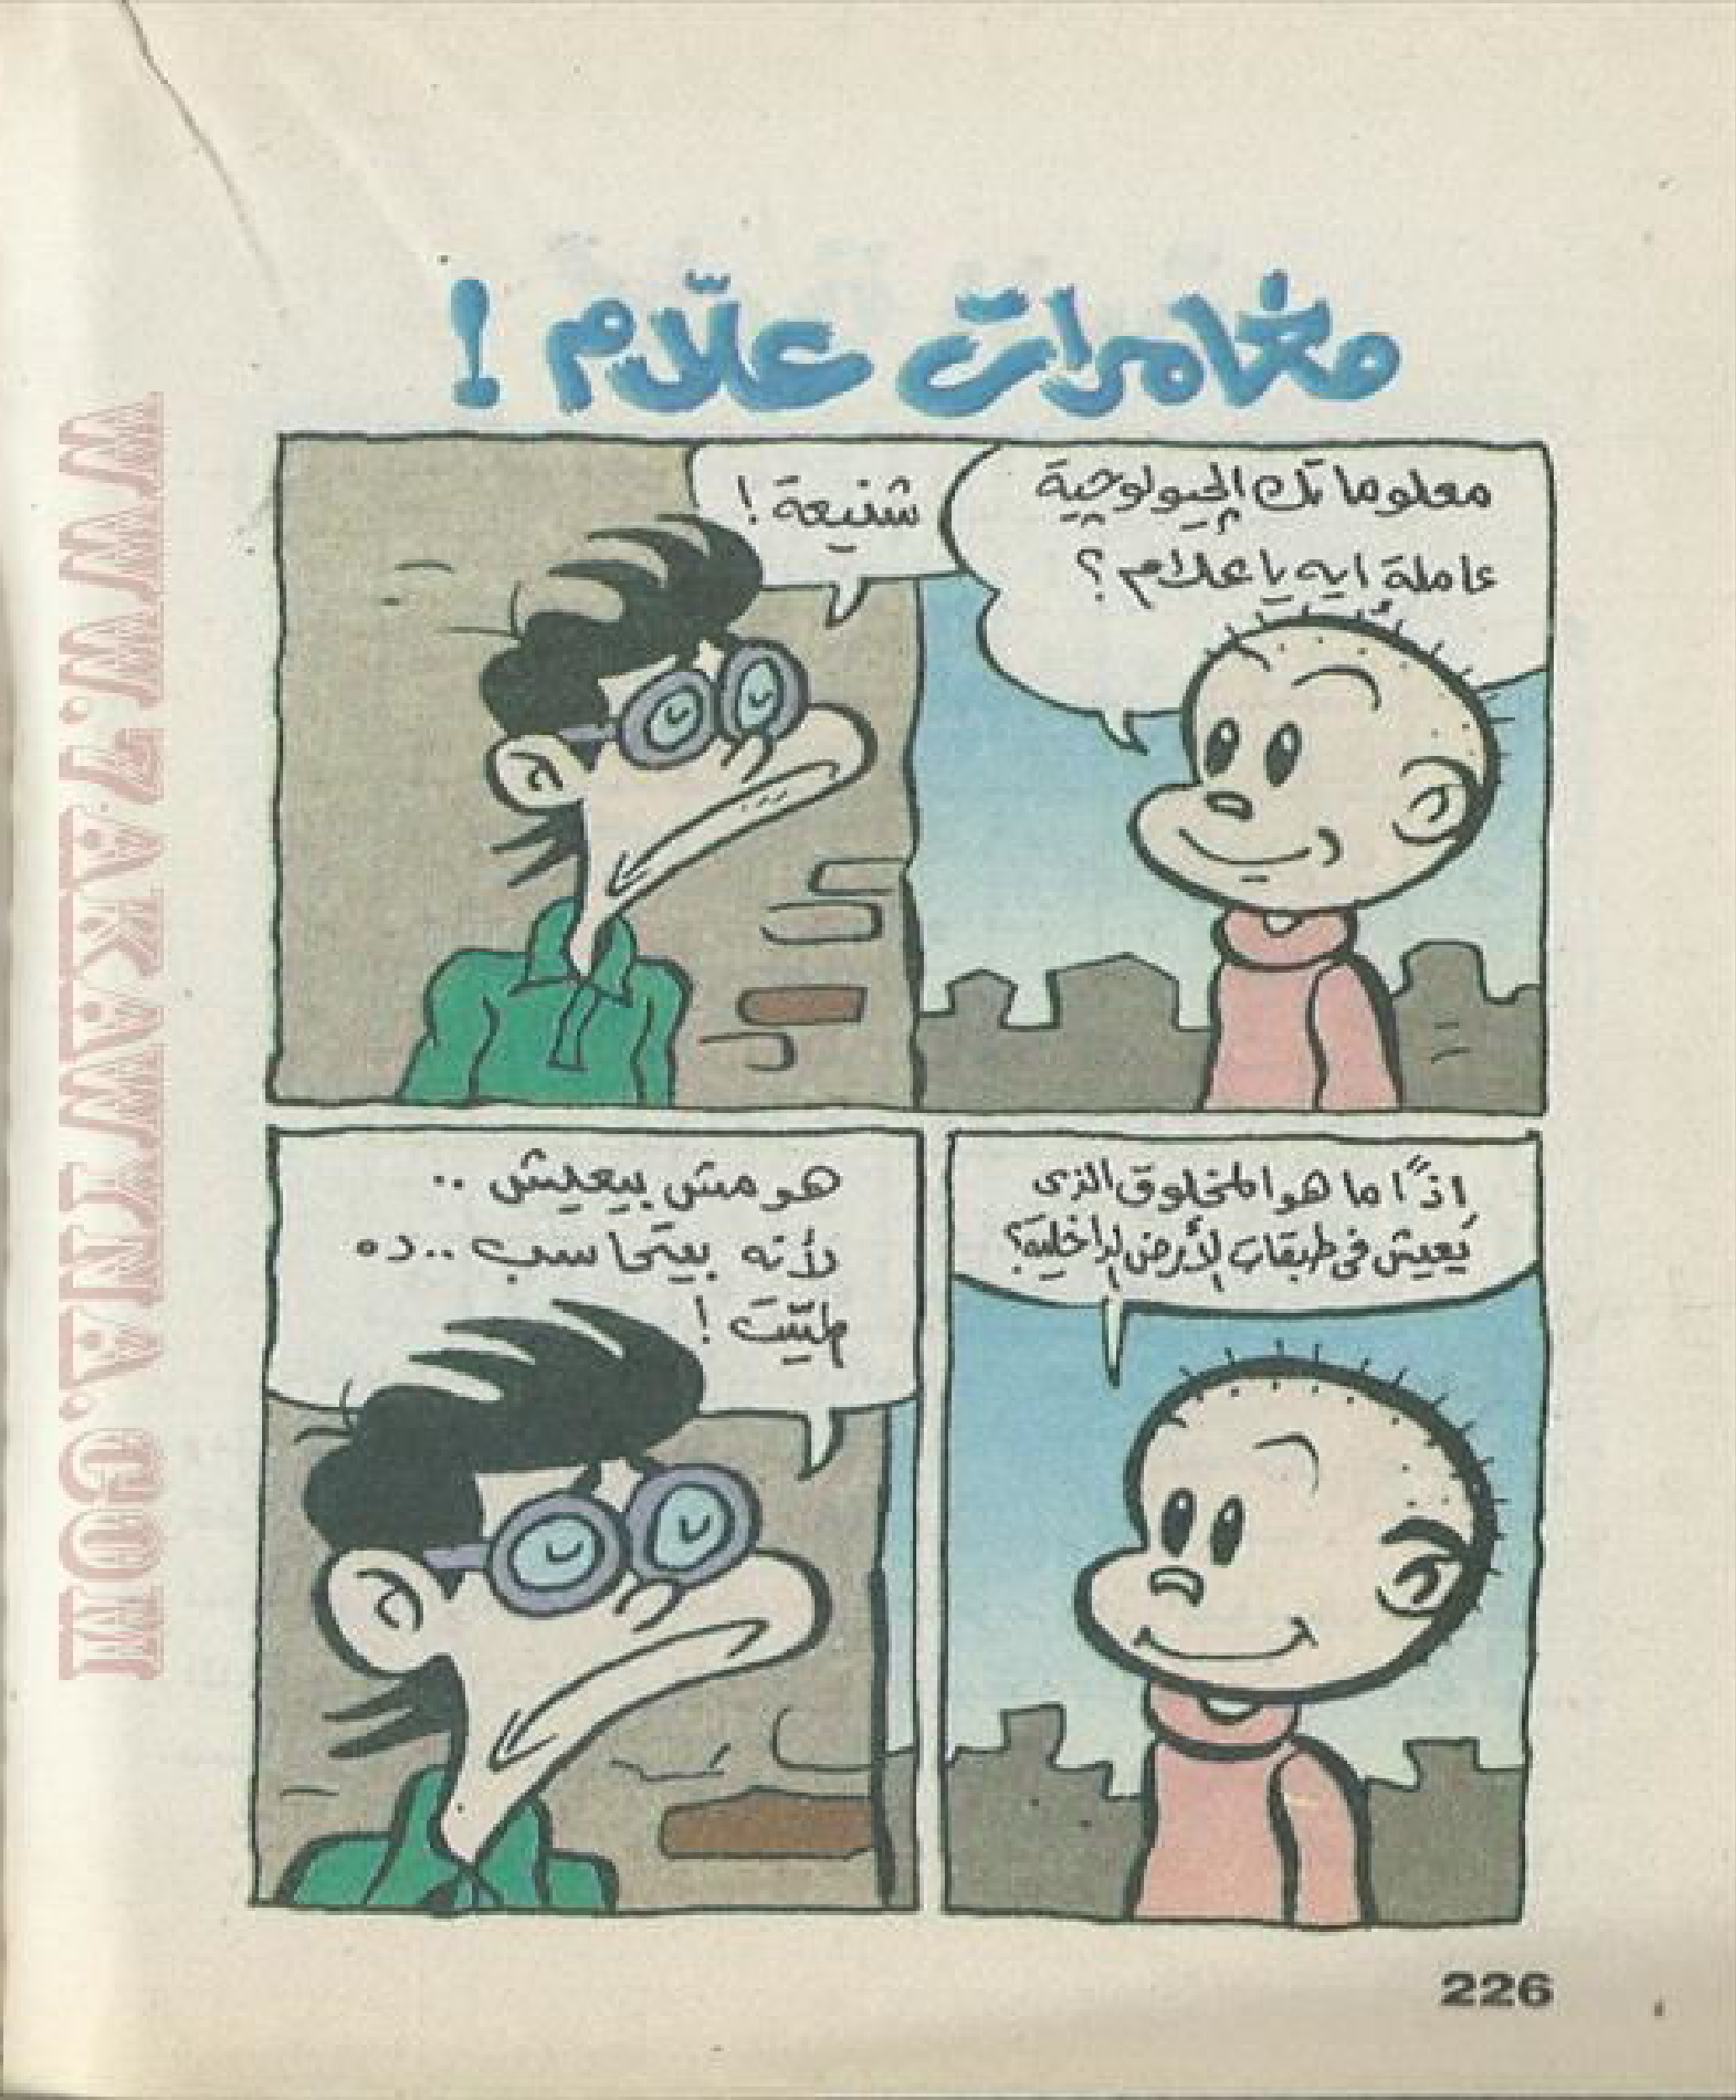 مغامرات علّام !
معلوماتك الجيولوجية
عاملة إيه يا علام ؟
شنيعة !
إذًا ما هو المخلوق الذى
يَعيش فى طبقات الأرض الداخلية؟
هو مش بيعيش ..
لأنه بيتحاسب .. ده
ميّت !
226
WWW.7AKAWINNA.COM